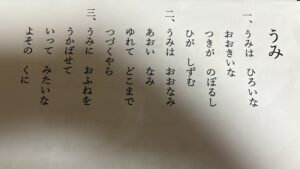 うみ
一、うみは ひろいな
おおきいな
つきが のぼるし
ひが しずむ
二、うみは おおなみ
あおい なみ
ゆれて どこまで
つづくやら
三、うみに おふねを
うかばせて
いって みたいな
よその くに